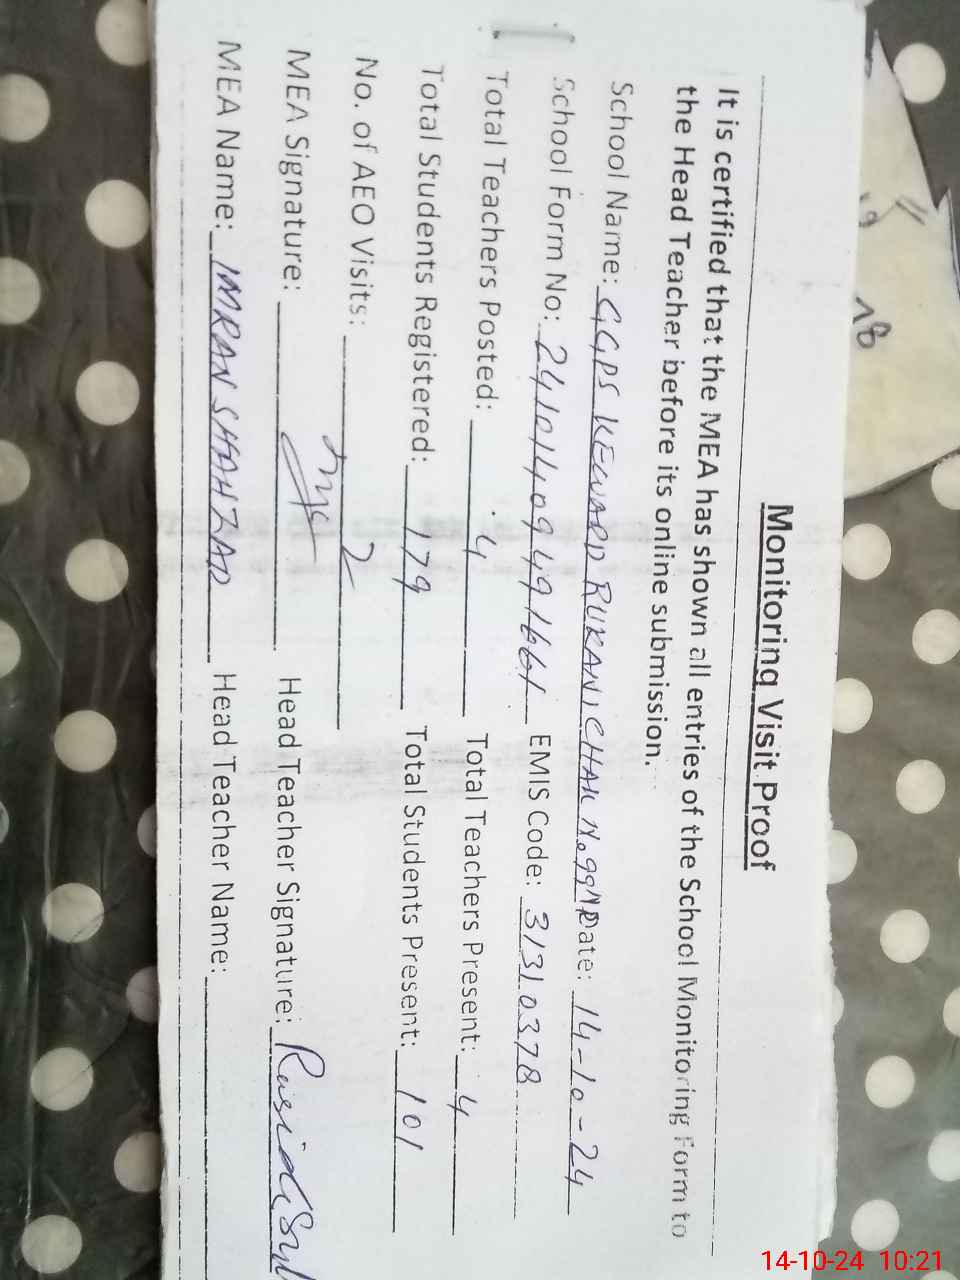 Monitoring Visit Proof
It is certified that the MEA has shown all entries of the School Monitoring Form to
the Head Teacher before its online submission.
School Name: GGPS KEWARD BURANI CHAK No 99MR Date: 14-10-24
School Form No: 24101409491661 EMIS Code: 31310378
Total Teachers Posted: 4 Total Teachers Present: 4
Total Students Registered: 179 Total Students Present: 101
No. of AEO Visits: 2
MEA Signature: Head Teacher Signature:
MEA Name: IMRAN SHAHZAD Head Teacher Name:
18
14-10-24 10:21